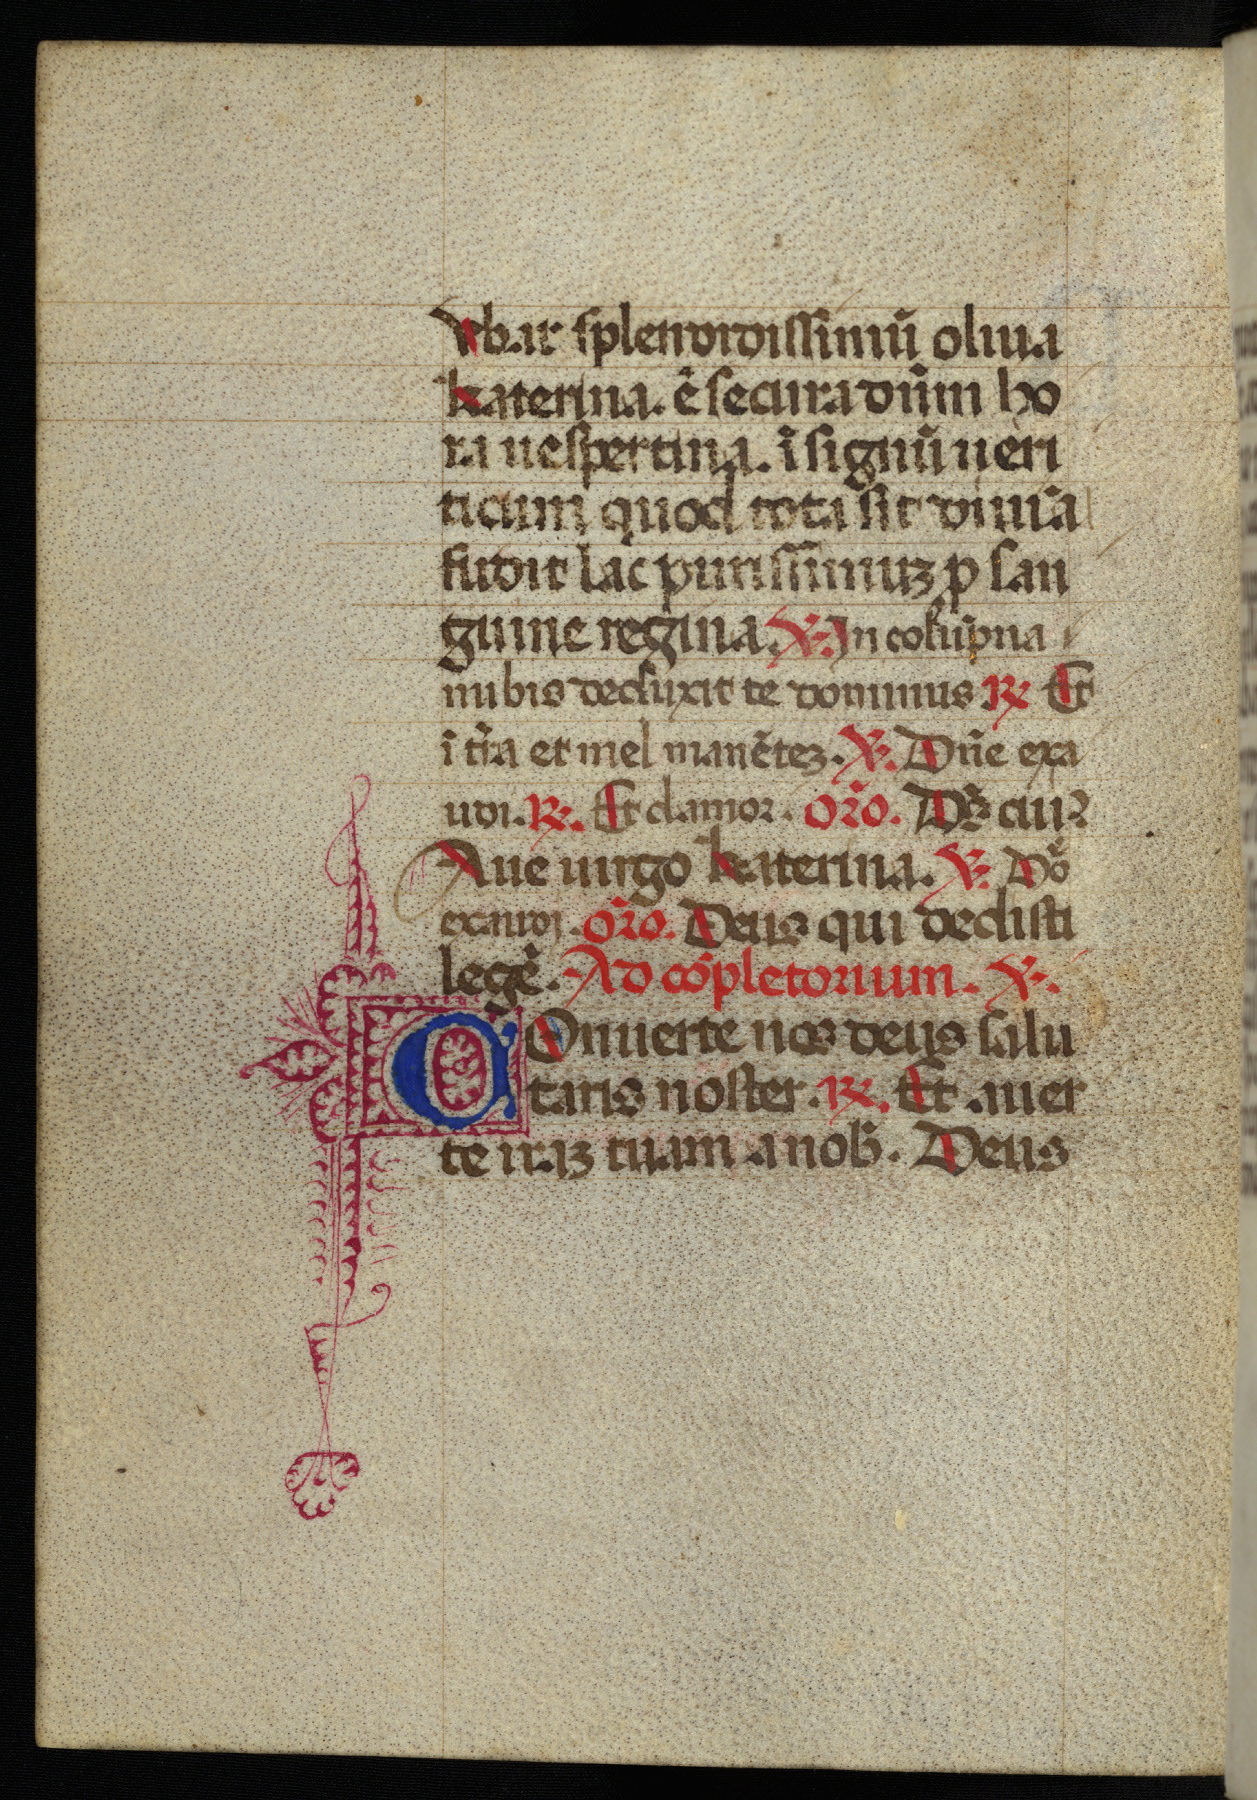 Vbar splendidissimũ oliua
katerina. ẽ secura dũm ho
ra uespertina. ĩ signũ ueri
ticum quod tota sit diuĩa
fudit lac purissimuꝫ ꝓ san
guine regina. ℣. In colũpna
nubis deduxit te dominus ℟ Et
ĩ tr̃a et mel manẽteꝫ. ℣. Dñe exa
udi. ℟. Et clamor. or̃o. Ds̃ cuiꝰ
Aue uirgo katerina. ℣. Dõ
exaudi. or̃o. Deus qui dedisti
legẽ. Ad cõpletorium. ℣.
COnuerte nos deus salu
taris noster. ℟. Et auer
te iraꝫ tuam a nob̃. Deus